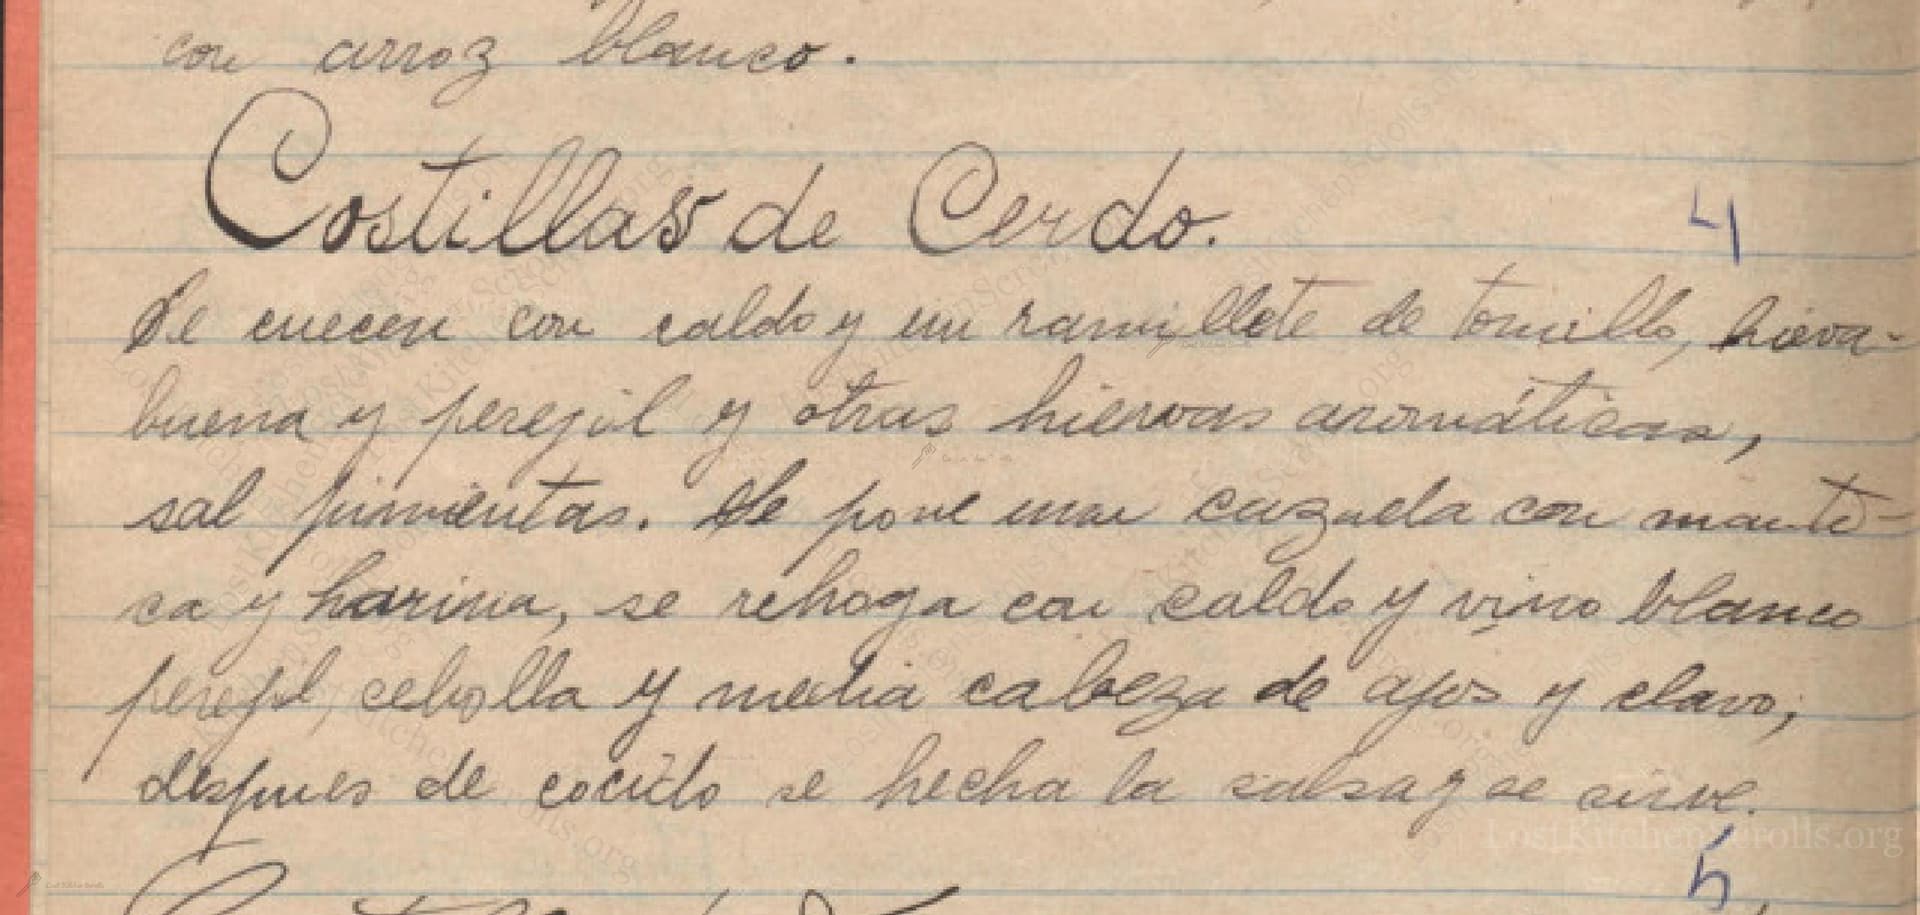 con arroz blanco.
Costillas de Cerdo.
4
Se cuecen con caldo y un ramillete de tomillo, hierva-
buena y perejil y otras hiervas aromáticas,
sal pimientas. Se pone una cazuela con mante-
ca y harina, se rehoga con caldo y vino blanco
perejil, cebolla y media cabeza de ajos y clavo;
despues de cocido se hecha la salsa y se sirve.
LostKitchenScrolls.org
5